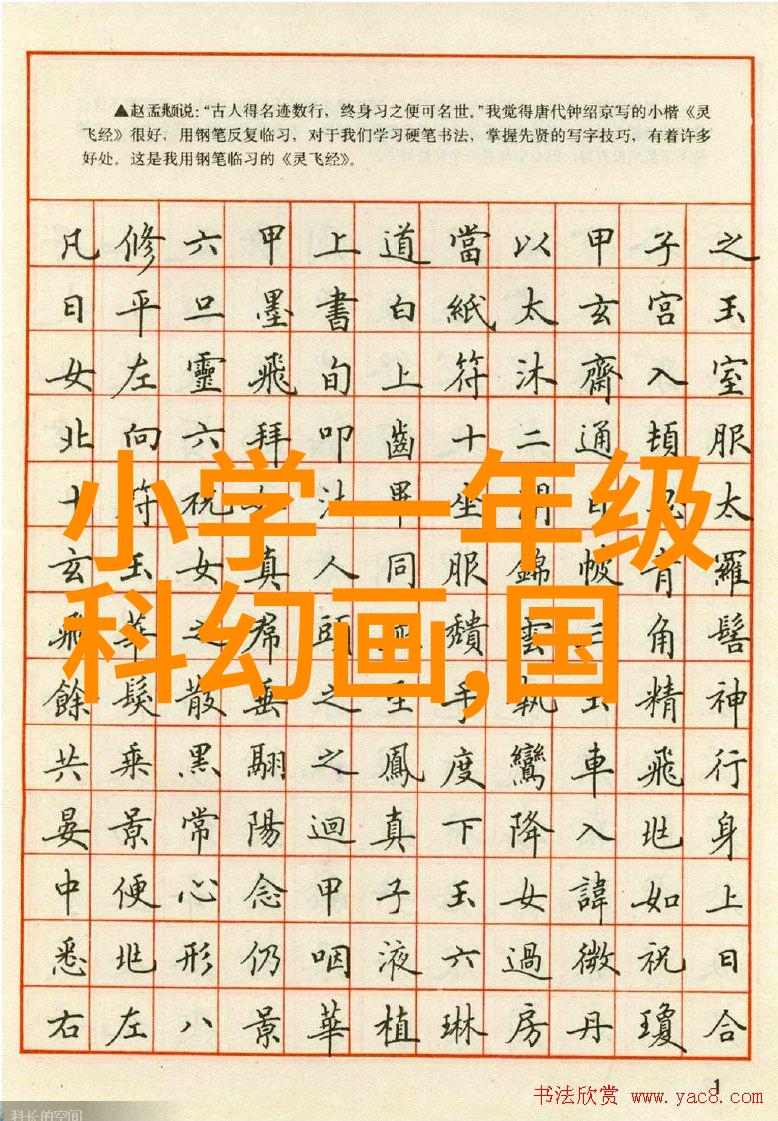 ▲赵孟頫说:“古人得名迹数行,终身习之便可名世。”我觉得唐代钟绍京写的小楷《灵
飞经》很好,用钢笔反复临习,对于我们学习硬笔书法,掌握先贤的写字技巧,有着许多
好处。这是我用钢笔临习的《灵飞经》。
凡修六甲上道當以甲子之
日平旦墨書白紙太玄宮玉
女左靈飛旬上符沐齋入室
北向六拜叩齒十二通頓服
十符祝如法畢坐閉目思太
玄玉女真人同服錦帔青羅
飛華之帬頭並頹雲三角髻
餘髮散垂之至手執玉精神
共乘黑翮之鳳度鸞車飛行
晏景常陽迴真下降入兆身
中便心念甲子玉女諱如上
悉兆形仍咽液六過微祝曰
右左八景華植琳房丹瓊合
小学一年级
科幻画,国
1
书法欣赏 www.yac8.com
科长的空间